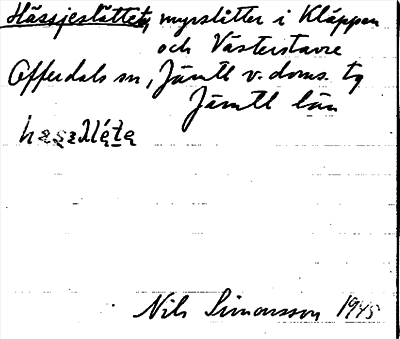 Hässjeslåttet, myrslåtter i Kläppen
och Västerstavre
Offerdals sn, Jämtl v. doms. tg
Jämtl län
Nils Simonsson 1945